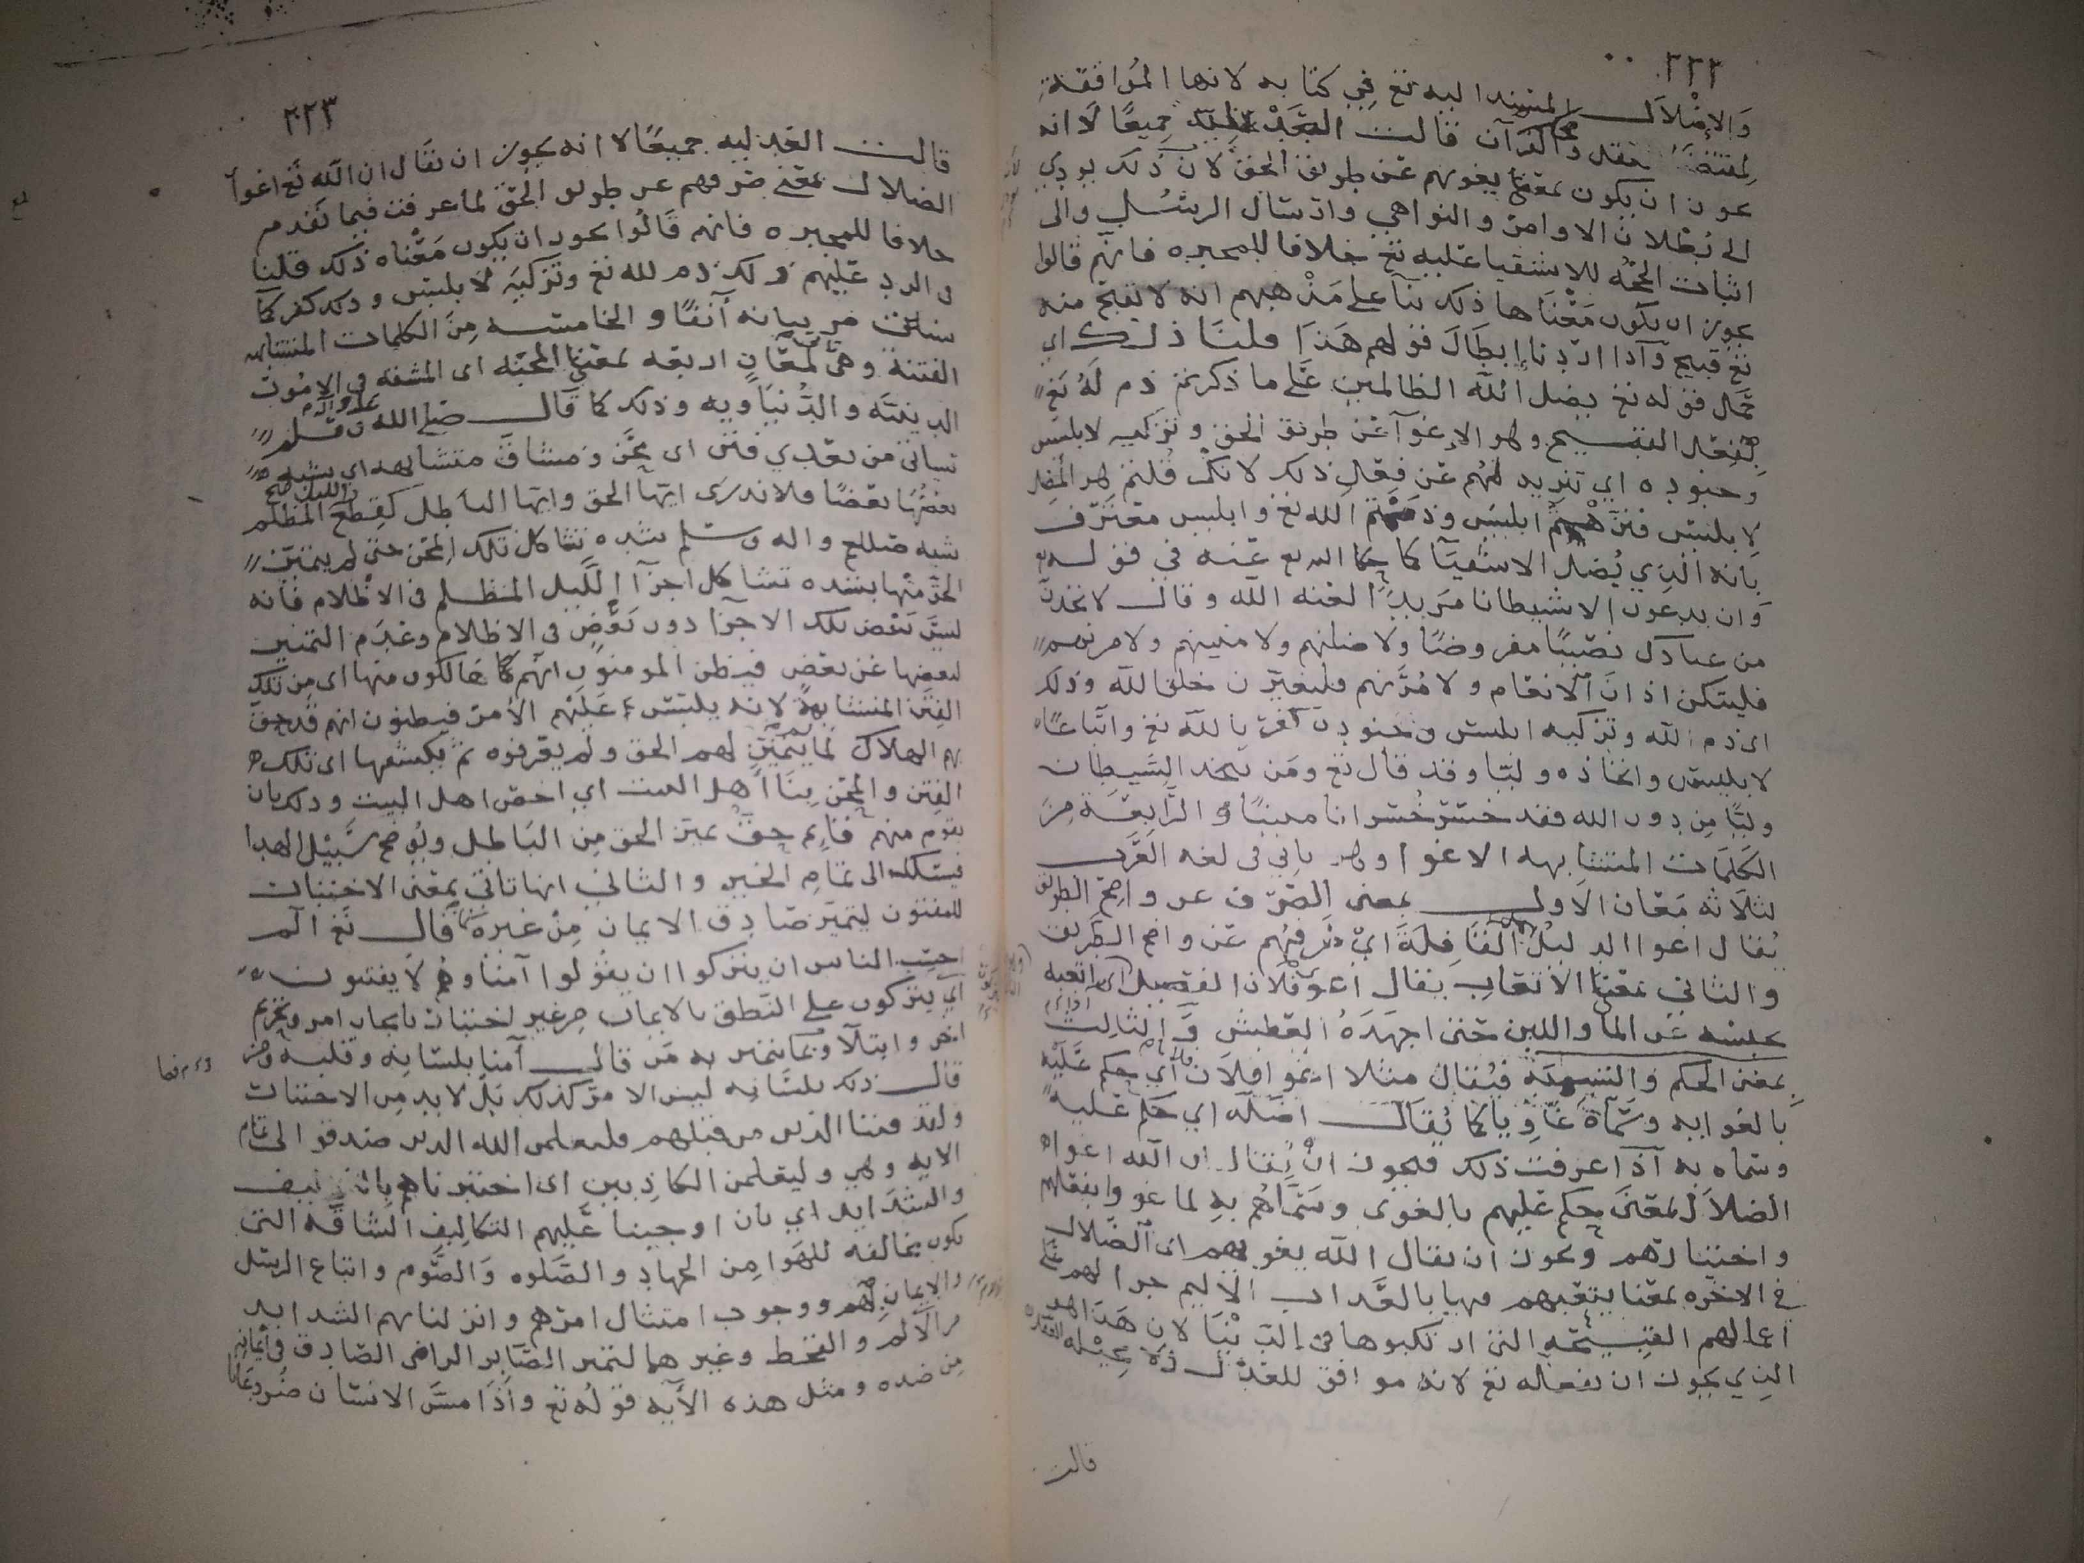 ٢٢٢
والإضلال المسند اليه تع في كتابه لانها الموافقة
لمقتضى العقل والقرآن قالت العدلية جميعًا لا انه
يجوز ان يكون بمعنى يغويهم عن طريق الحق لان ذلك يودي
الى بُطلان الاوامر والنواهي وارسال الرسُل والى
اثبات الحجّه للاشقيا عليه تع خلافا للمجبره فانهم قالوا
يجوز ان يكون مَعْنَاها ذلك بناً على مَذْهبهم انه لا يقبح منه
تع قبيح وآذا اردنا إبطال قولهم هَذَا قلنا ذلك اي
حمل قوله تع يضل الله الظالمين على ما ذكرتم ذم لَهُ تع
بفعل القبيح وهو الإغوآ عن طريق الحق وتزكيه لابليس
وجنوده اي تنزيه لهُم عن فعل ذلك لانكم قلتم هو المُضل
لا ابليس فنزهتم ابليس وذممتم الله تع وابليس معترف
بأنه الذي يُضل الاشقيآ كما حكا الله تع عنه في قوله تع
وَان يدعون الا شيطانا مريدًا لعنه الله وقال لاتخذن
من عبادك نصيبًا مفروضًا ولاضلنهم ولامنينهم ولامرنهم
فليبتكن اذان الانعام ولامُرَنهم فليغيرن خلق الله وذلك
اى ذم الله وتزكيه ابليس وجنوده كفر بالله تع واتّباعًا
لابليس واتخاذه وليّا وقد قال تع ومَن يتخذ الشيطان
وليًّا مِن دون الله فقد خسر خُسرانا مبينًا والرّابِعَة مِن
الكلمَات المتشابهه الاغوا وهو ياتي في لغه العَرب
لثلاثه مَعَان الاول بمعنى الصّرف عن واضح الطريق
يُقال اغوا الدليلُ القافلة اي صرفهم عن واضح الطريق
والثاني بمعنى الاتعاب يقال اغوى فلان الفصيل اي اتعبه
بحبسه عن الما واللبن حتى اجهدَهُ العَطش وَالثالث
بمعنى الحكم والتسمِيَة فيُقال مثلا اغوا فلان فلانا اي حكم عَليْه
بالغوايه وسَمّاه غَاويا كما يُقال اضلّه اي حكم عليه
وسماه به آذا عرفت ذلك فيجوز انْ يُقال ان الله اغوا
الضلال بمعنى حكم عليهم بالغوى وسَمّاهُم بهِ لما غووا بفعلهم
واختيارهم ويجوز ان يقال الله يغويهم اى الضلال
في الاخره بمعنا يتعبهم فيها بالعَذاب الاليم جزا لهم على
اعمالهم القبيحَه التي ارتكبوها في الدنيَا لان هَذَا هو
الذي يجوز ان يفعله تع لانه موافق للعَدْل
قالت
٢٢٣
قالت العدليه جميعًا لا انه يجوز ان يقال ان الله تع اغوا
الضلال بمعنى صَرفهم عن طريق الحقّ لما عرفت فيما تقدم
خلافا للمجبره فانهم قَالُوا يجوز ان يكون مَعْناه ذلك قلنا
في الرد عَليهم ذلك ذم لله تع وتزكيَه لابليس وذلك كفر كما
سَلف مر بيانه آنفًا والخامسه مِنَ الكلمات المتشابهه
الفتنة وهي لمعَان اربعه بمعنى المحنة اى المشقه في الامُور
الدينيّه والدُّنيَاويه وذلك كما قَال صَلى الله عليه وآله وسلم
تساتى من بَعْدي فتن اى مِحَن ومشاق متشابهه اى يشبه
بعضُهَا بَعضًا فلا ندرى ايّها الحق وايها الباطل كقِطَع الليل المظلم
شبه صللم واله وسلم شده تشاكل تلك المحن حتى لم يتميز
الحق منْها بشده تشاكل اجزآ اللّيل المظلم في الاظلام فانه
ليسَ بَعْض تلك الاجزآ دون بَعْضٍ في الاظلام وعَدَم التميز
لبعضها عن بَعض فيظن المومنون انهم هَالكون منها اى من تلك
الفتن المتشابهة لانه يلتبس عَلَيْهم الامر فيظنون انهم قد حق
بهم الهلاك لمّا لم يتميّز لهم الحق ولم يعرفوه ثم يكشفها اى تلك
الفتن والمحن بِنَا اهل البيت اي اخص اهل البيت وذلك بان
يقوم منهم قائِم حق يميّز الحق مِن البَاطل ويُوضح سَبيل الهدا
فيسلكه الى تمَامِ الخبر والثاني انها تاتي بِمعنى الاختبار
للمفتون ليتميّز صَادق الايمان مِنْ غيره كما قال تَع آلم
احسِب الناس ان يتركوا ان يقولوا آمنا وهُم لا يفتنون
اي يتركون على النطق بالايمان مِن غير اختبار بايجاب امر وتحريم
اخر وابتلآ وبما يتميز به مَن قال آمنا بلسَانه وقلبه ومن
قال ذلك بلسَانه ليس الا مرّ كذلك بَلْ لابد مِن الاختبار
ولقد فتنا الذين من قبلهم فليعلمن الله الذين صَدقوا الى تمام
الايه وهي وليعلمن الكاذبين اى اختبرناهم بالتكاليف
والشدايد اي بان اوجبنا عَليهم التكاليف الشاقّه التى
يكون مخالفه للهَوا مِن الجهاد والصَّلوه والصَّوم واتباع الرسل
والايمان بهم ووجوب امتثال امرهم وانزلنا بهم الشدايد
من الألم والقحط وغيرهما ليتميز الصَّابِر الراضى الصّادق في ايمانه
مِن ضده ومثل هذه الآيه قولهُ تع واذا مَسّ الانسان ضُر دعَانا